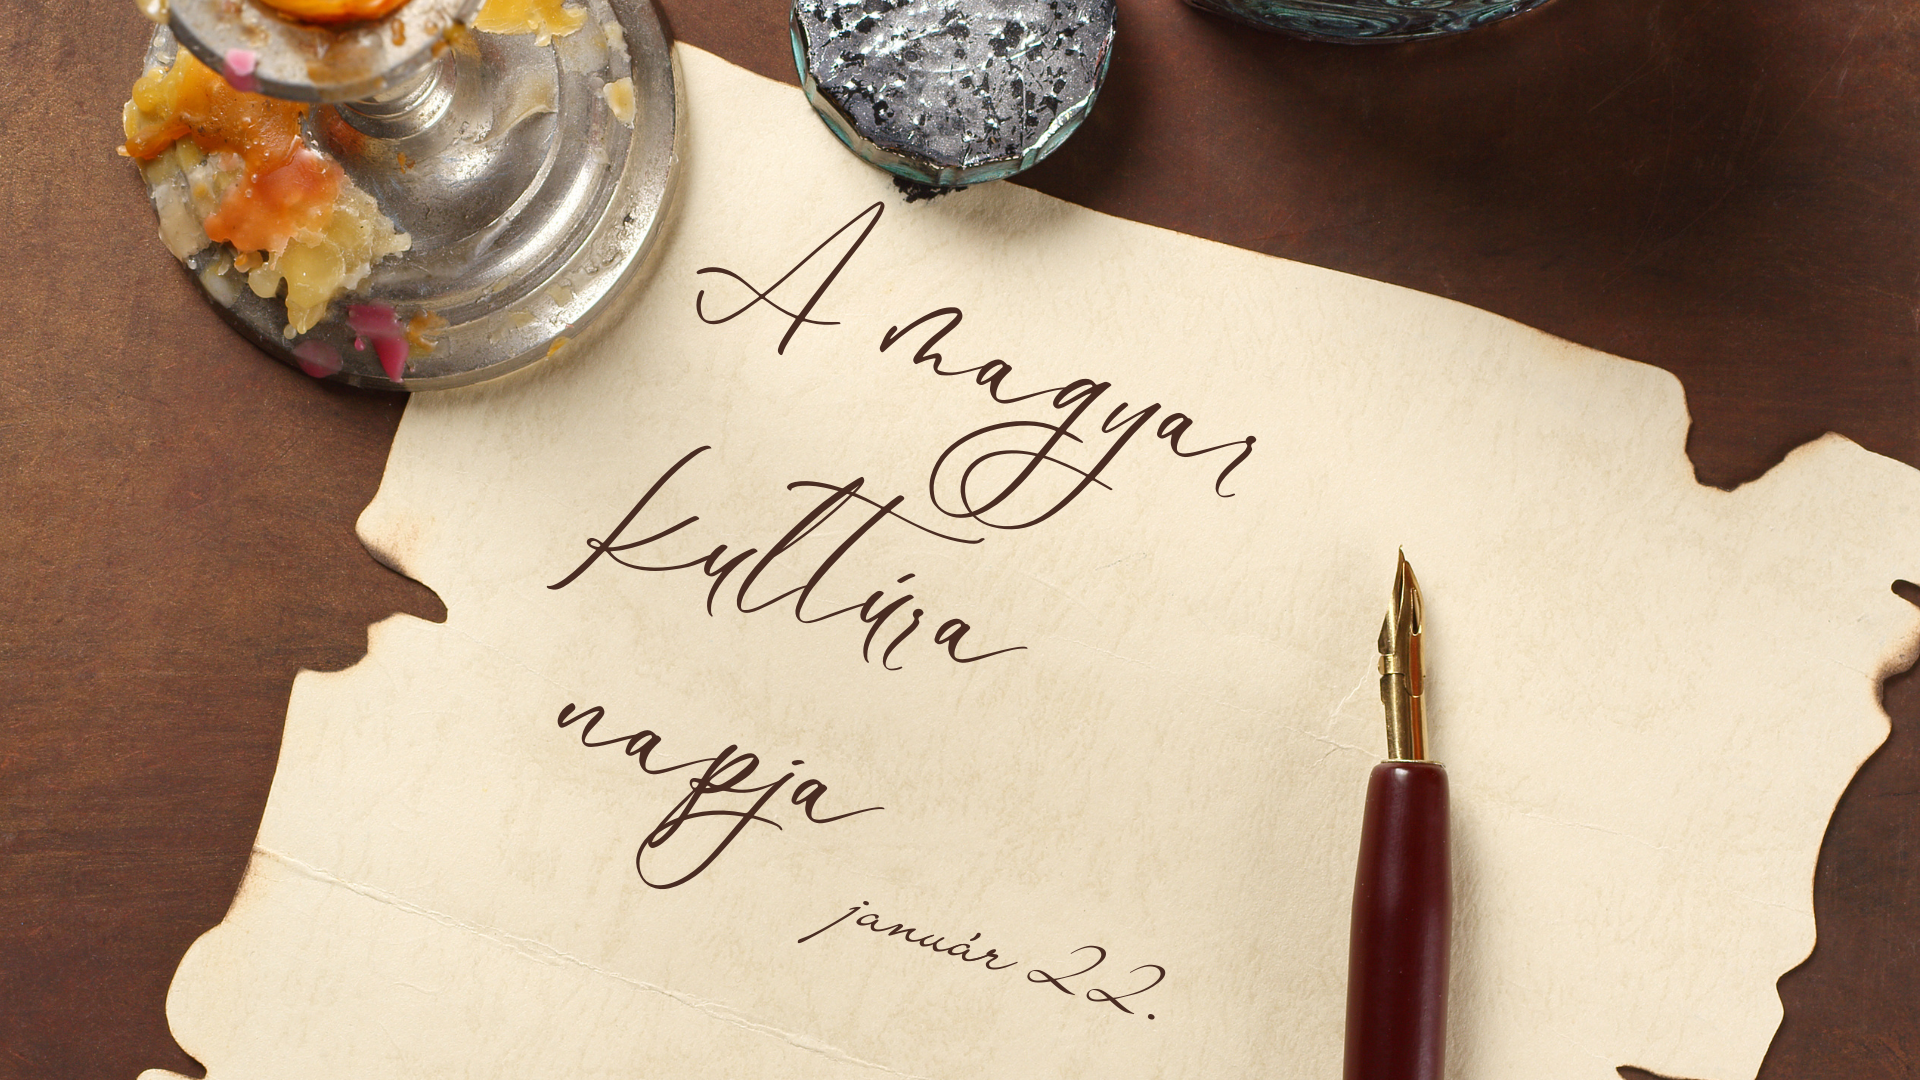 A magyar
kultúra
napja
január 22.